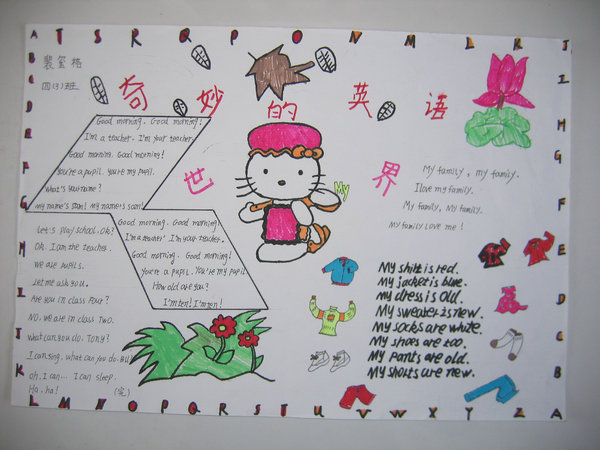 T S R Q P O N M L K J
四(3)班
奇妙的英语
世界
Good morning. Good morning!
I'm a teacher. I'm your teacher.
Good morning. Good morning!
You're a pupil. you're my pupil.
What's your name?
My name's Sam! my name's Sam!
Good morning. Good morning.
I'm a teacher. I'm your teacher.
Good morning. Good morning!
You're a pupil. You're my pupil
How old are you?
I'm ten! I'm ten!
Let's play school. Ok?
Oh. I am the teacher.
We are pupils.
Let me ask you.
Are you in class Four?
NO. we are in class Two.
What can you do. Tony?
I can sing. what can you do. Bill
oh. I can... I can sleep.
Ha. ha!
(完)
My
My family, my family.
I love my family.
My family, My family.
my family love me!
My shirt is red.
My jacket is blue.
my dress is old.
My sweater is new.
My socks are white.
My shoes are too.
My pants are old.
My shorts are new.
A B C D E F G H I J K
L M N O P Q R S T U V W X Y Z A
I H G F E D C B